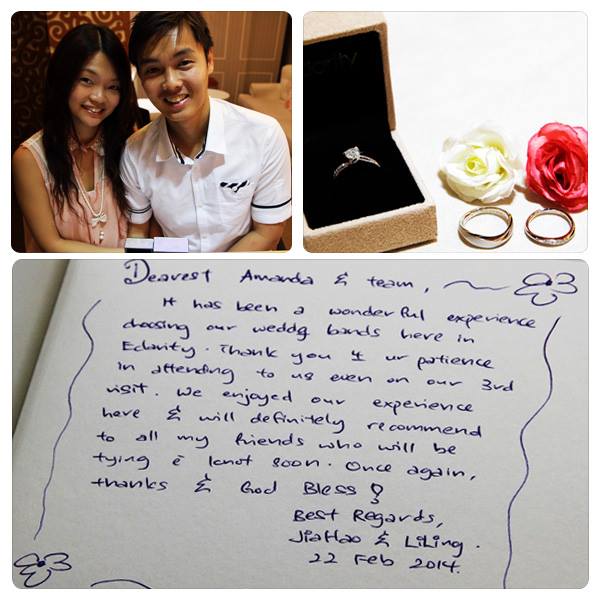 Dearest Amanda & team,
It has been a wonderful experience
choosing our weddg bands here in
Eclarity. Thank you 4 ur patience
in attending to us even on our 3rd
visit. We enjoyed our experience
here & will definitely recommend
to all my friends who will be
tying ē knot soon. Once again,
thanks & God Bless!
Best Regards,
JiaHao & LiLing.
22 Feb 2014.